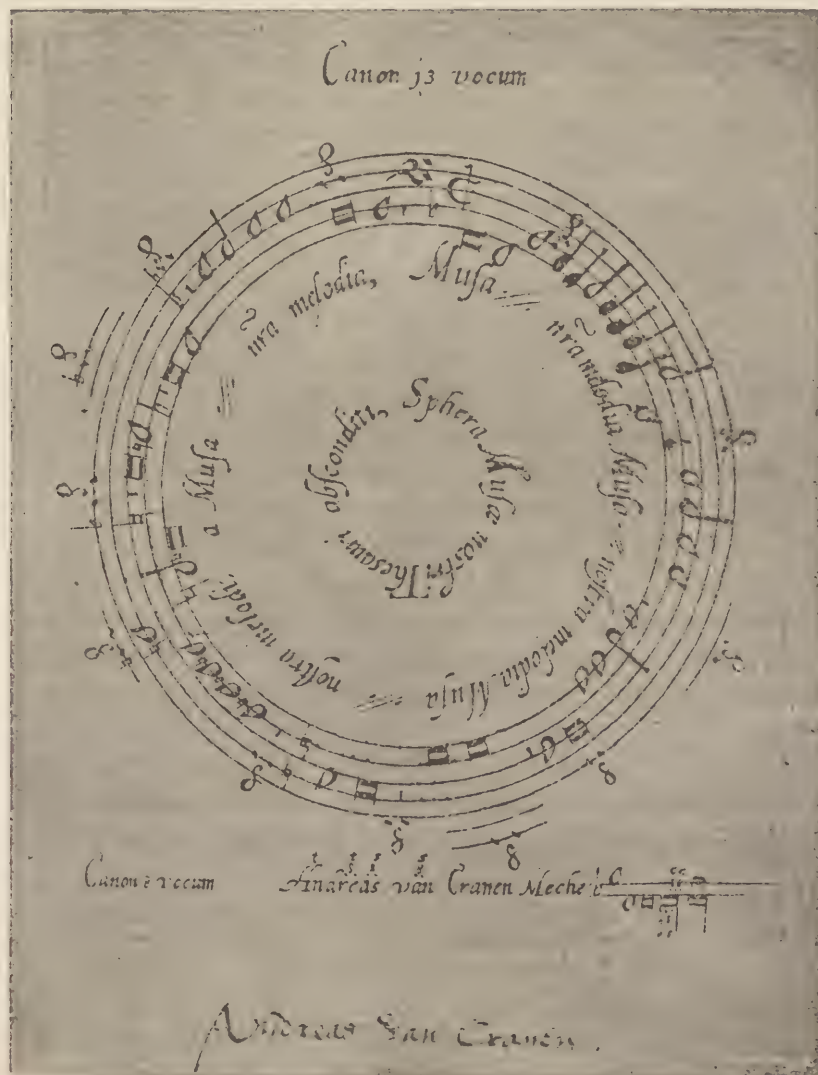 Canon j3 vocum
Musa nr̃a melodia Musa nostra melodia Musa nostra melodia Musa nr̃a melodia,
Sphera Musæ nostri Thesauri absconditi,
Canon vocum
Andreas van Cranen
Andreas Van Cranen.